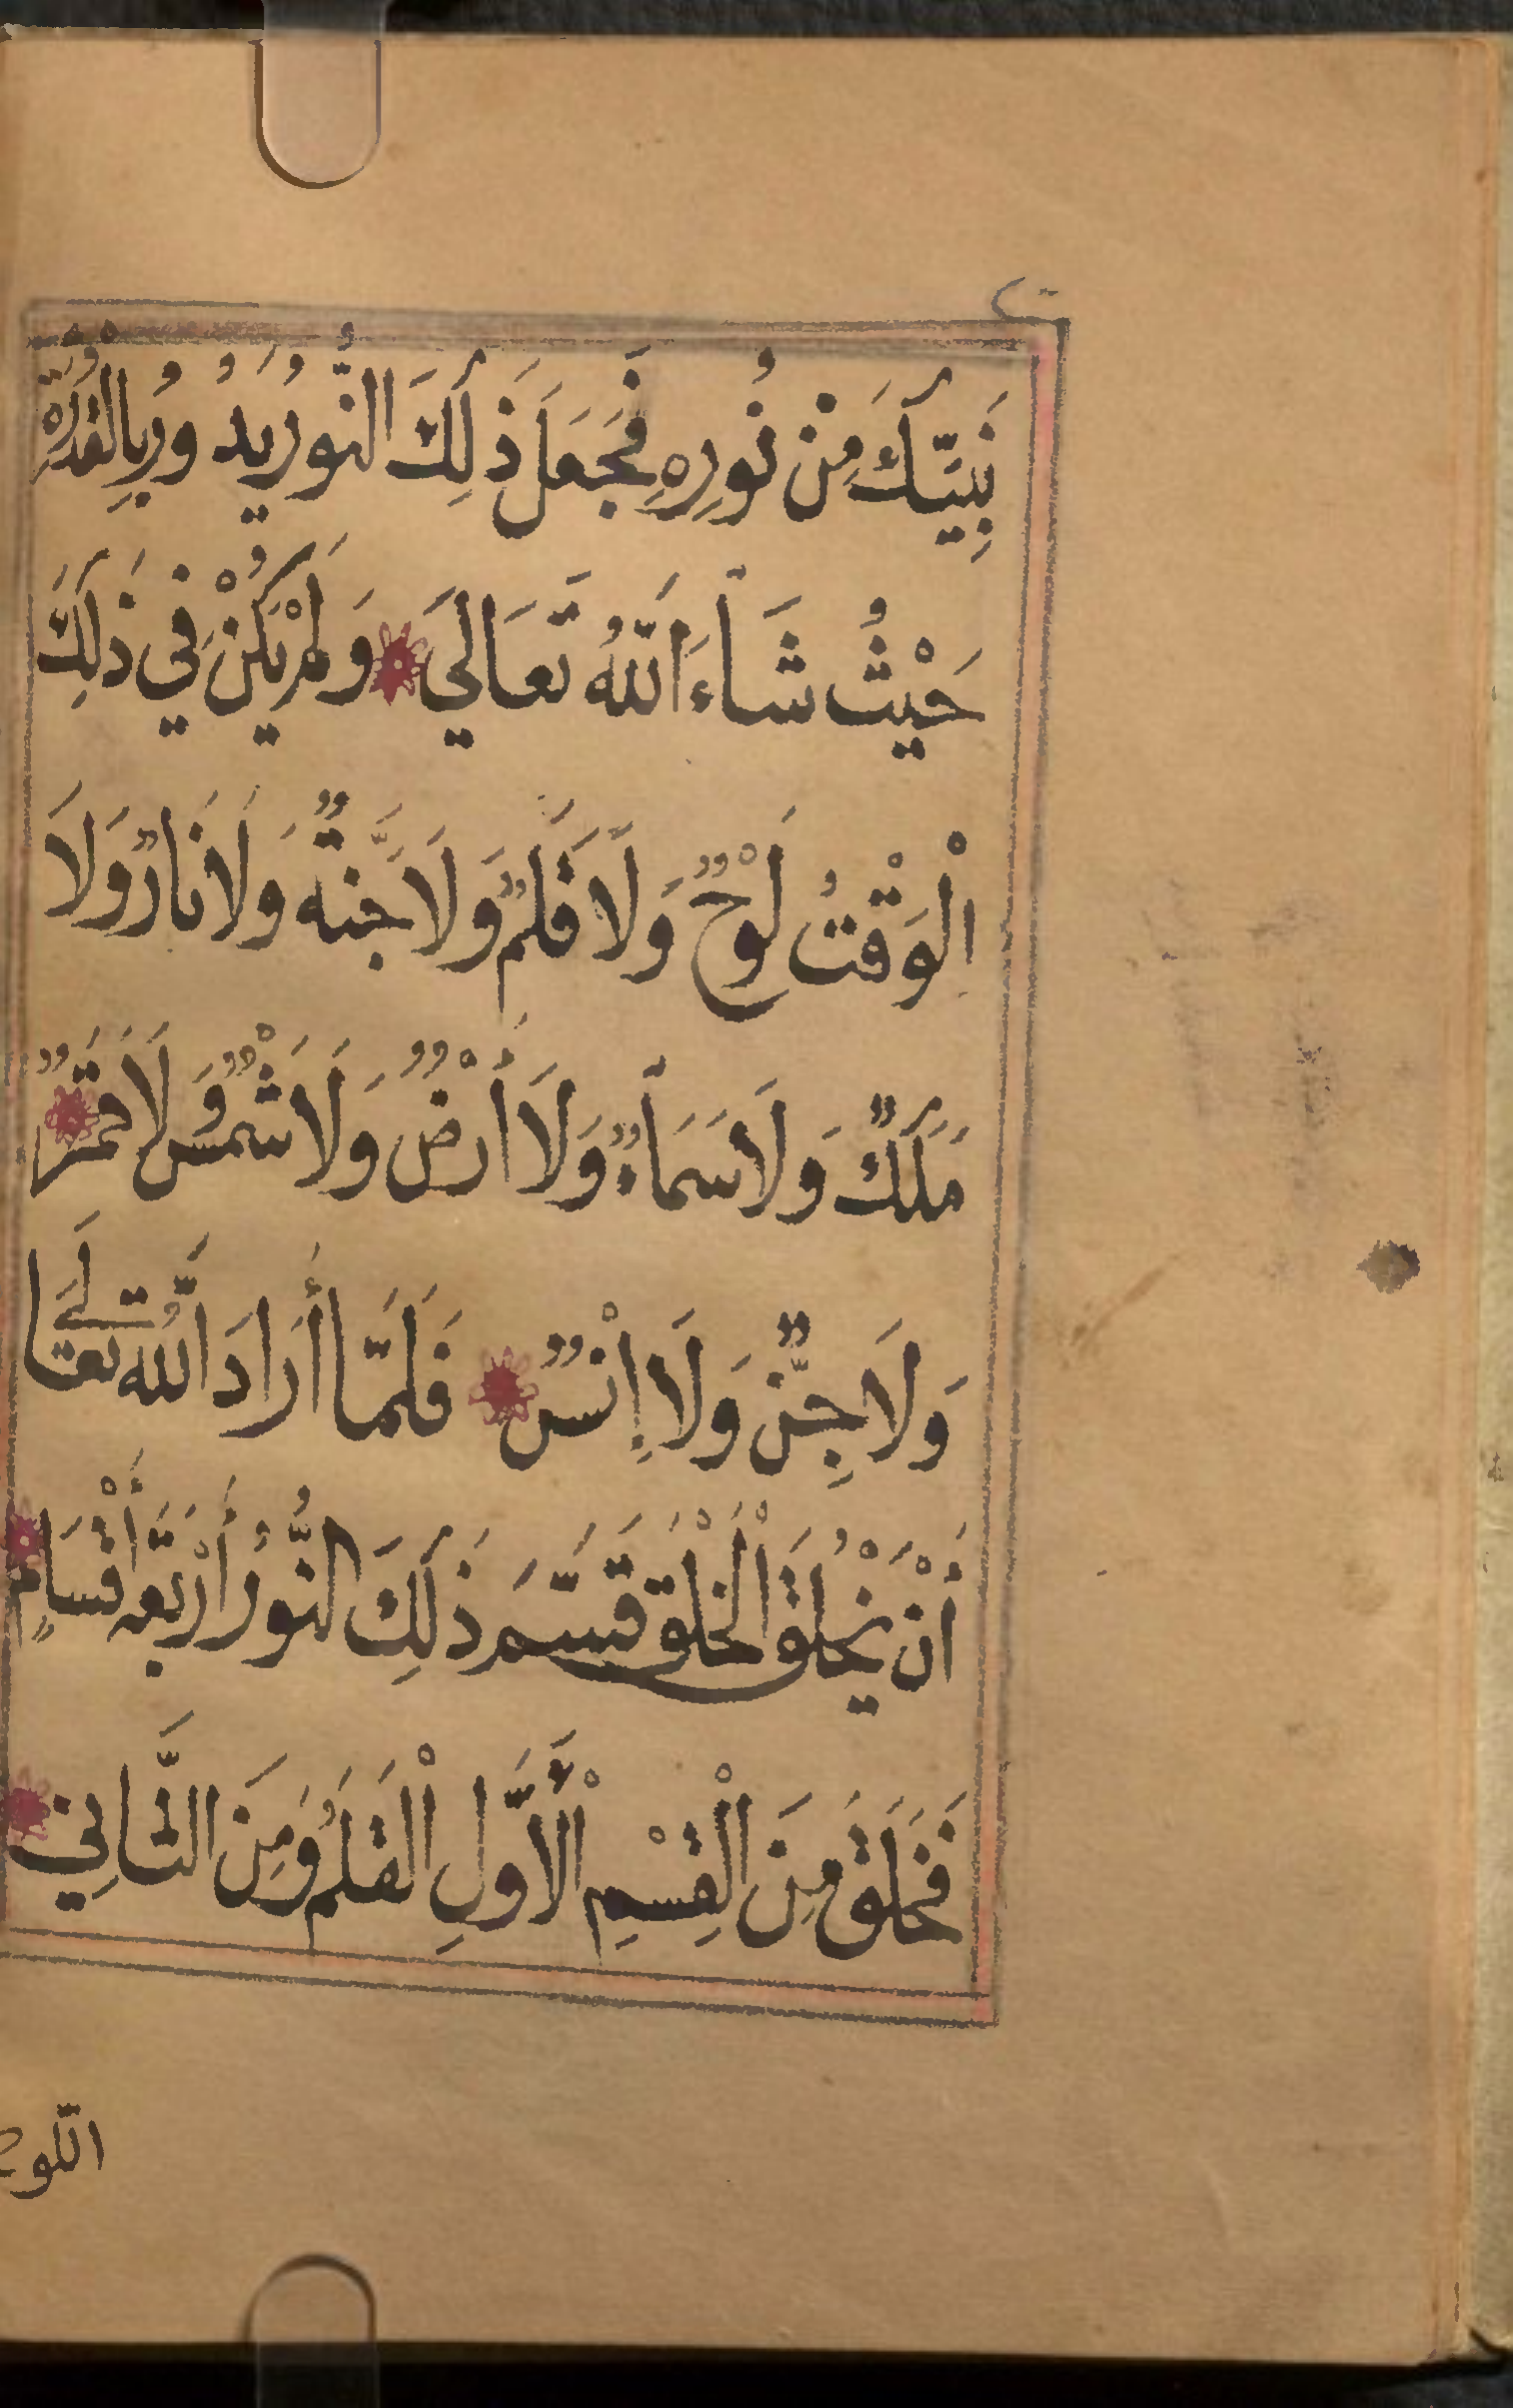 نَبِيَّكَ مِنْ نُورِهِ فَجَعَلَ ذَٰلِكَ النُّورُ يَدُورُ بِالْقُدْرَةِ
حَيْثُ شَاءَ اَللّٰهُ تَعَالَي وَلَمْ يَكُنْ فِي ذَٰلِكَ
اَلْوَقْتُ لَوْحٌ وَلَا قَلَمٌ وَلَا جَنَّةٌ وَلَا نَارٌ وَلَا
مَلَكٌ وَلَا سَمَاءٌ وَلَا أَرْضٌ وَلَا شَمْسٌ وَلَا قَمَرٌ
وَلَا جِنٌّ وَلَا إِنْسٌ فَلَمَّا أَرَادَ اللّٰهُ تَعَالَى
أَنْ يَخْلُقَ اَلْخَلْقَ قَسَّمَ ذَٰلِكَ النُّورُ أَرْبَعَةَ أَقْسَامٍ
فَخَلَقَ مِنَ الْقِسْمِ الْأَوَّلِ الْقَلَمُ وَمِنَ الثَّانِي
اللّوح